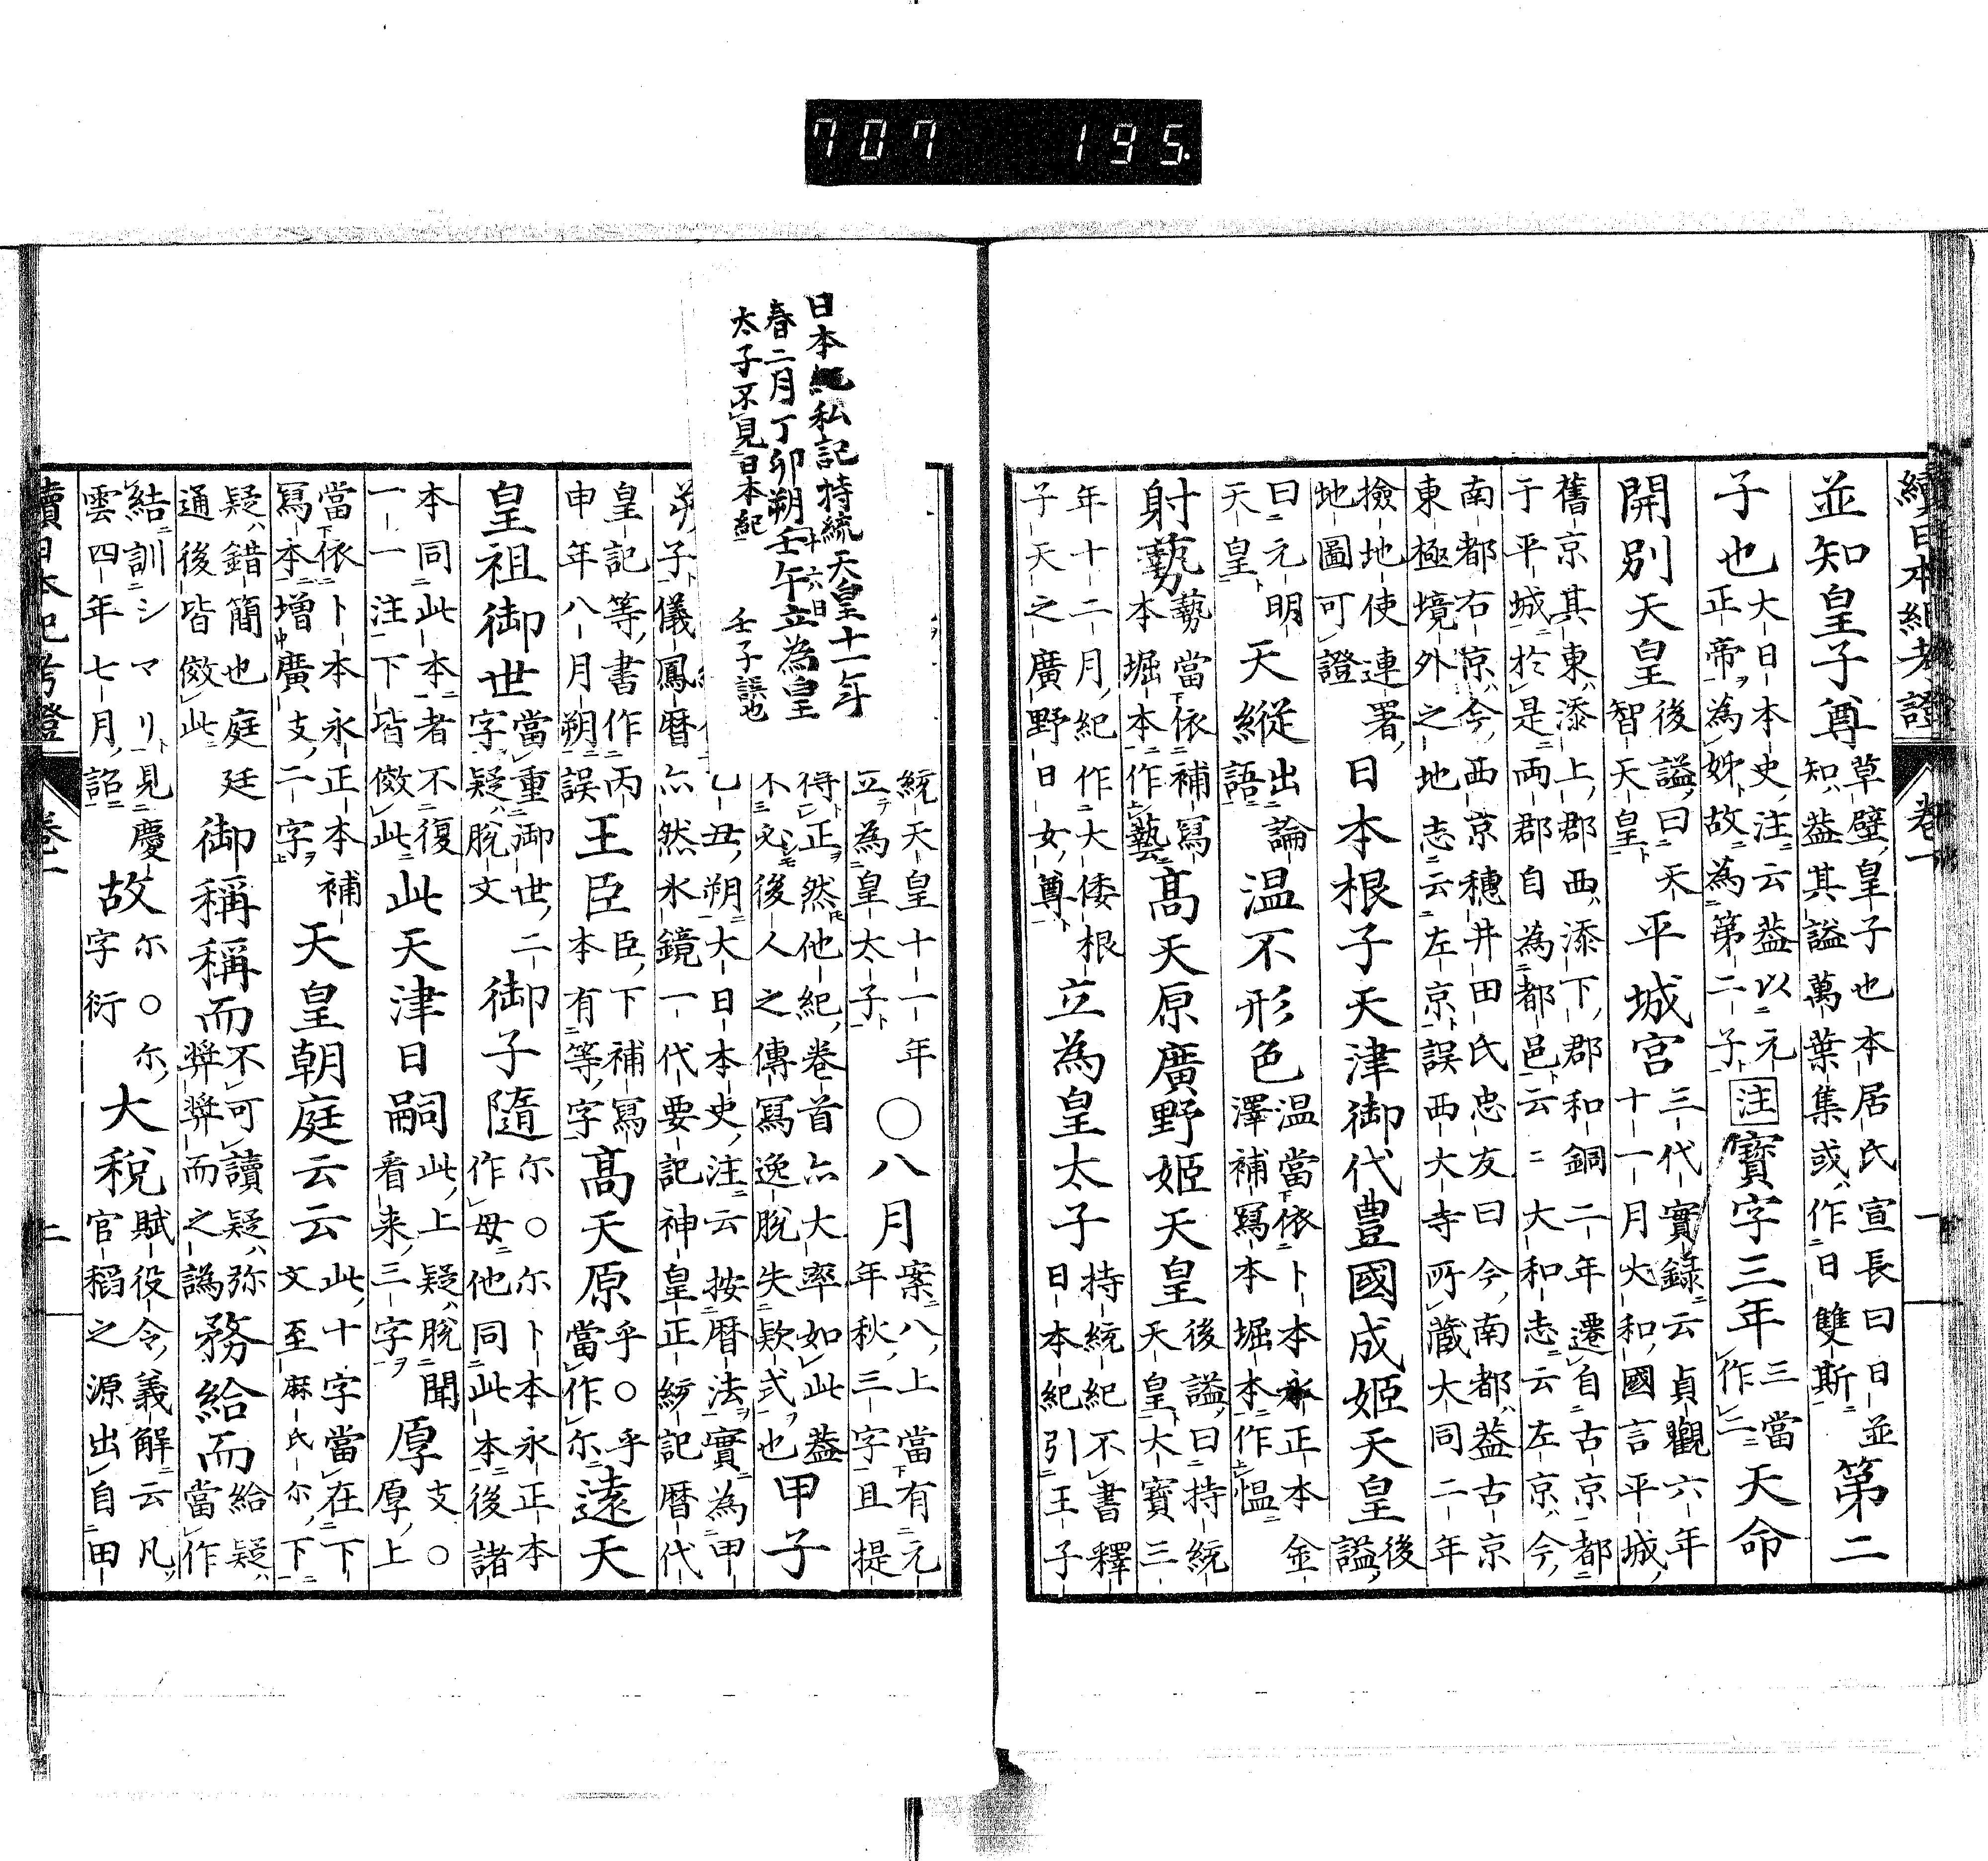 707 195.
續日本紀考證 卷一 一
並知皇子尊 草壁皇子也本居氏宣長曰日並知蓋其謚萬葉集或作日雙斯 第二
子也 大日本史注云蓋以元正帝為姊故為第二子 注 寶字三年 三當作二 天命
開別天皇 後謚曰天智天皇 平城宮 三代實錄云貞觀六年十一月大和國言平城
舊京其東添上郡西添下郡和銅二年遷自古京都于平城於是兩郡自為都邑云云大和志云左京今
南都右京今西京穗井田氏忠友曰今南都蓋古京東極境外之地志云左京誤西大寺所藏大同二年
撿地使連署地圖可證 日本根子天津御代豊國成姬天皇 後謚
曰元明天皇 天縱 出論語 温不形色 温當依卜本永正本金澤補寫本堀本作愠
射藝 藝當依補寫本堀本作藝 高天原廣野姬天皇 後謚曰持統天皇大寶三
年十二月紀作大倭根子天之廣野日女尊 立為皇太子 持統紀不書釋日本紀引王子
日本紀私記持統天皇十一年
春二月丁卯朔壬午十六日立為皇
太子不見日本紀 壬子誤也
統天皇十一年立為皇太子 ○八月 案八上當有元年秋三字且提
得正然他紀卷首亦大率如此蓋後人之傳寫逸脫失欵式也 甲子
乙丑朔大日本史注云按曆法實為甲
子儀鳳曆亦然水鏡一代要記神皇正統記曆代
皇記等書作丙申年八月朔誤 王臣 臣下補寫本有等字 高天原 乎○乎當作尓 遠天
皇祖御世 當重御世二字疑脫文 御子隨 尓○尓卜本永正本作母他同此本後諸
本同此本者不復一一注下皆傚此 此天津日嗣 此上疑脫聞看来三字 厚 支○厚上
當依卜本永正本補寫本增廣支二字 補 天皇朝庭云云 此十字當在下文至麻氏尓下
疑錯簡也庭廷通後皆傚此 御稱稱而 不可讀疑弥弉弉而之譌 務給而 給疑當作
結訓シマリ見慶雲四年七月詔 故 尓○尓字衍 大税 賦役令義解云凡官稻之源出自田
續日本紀考證 卷一 二